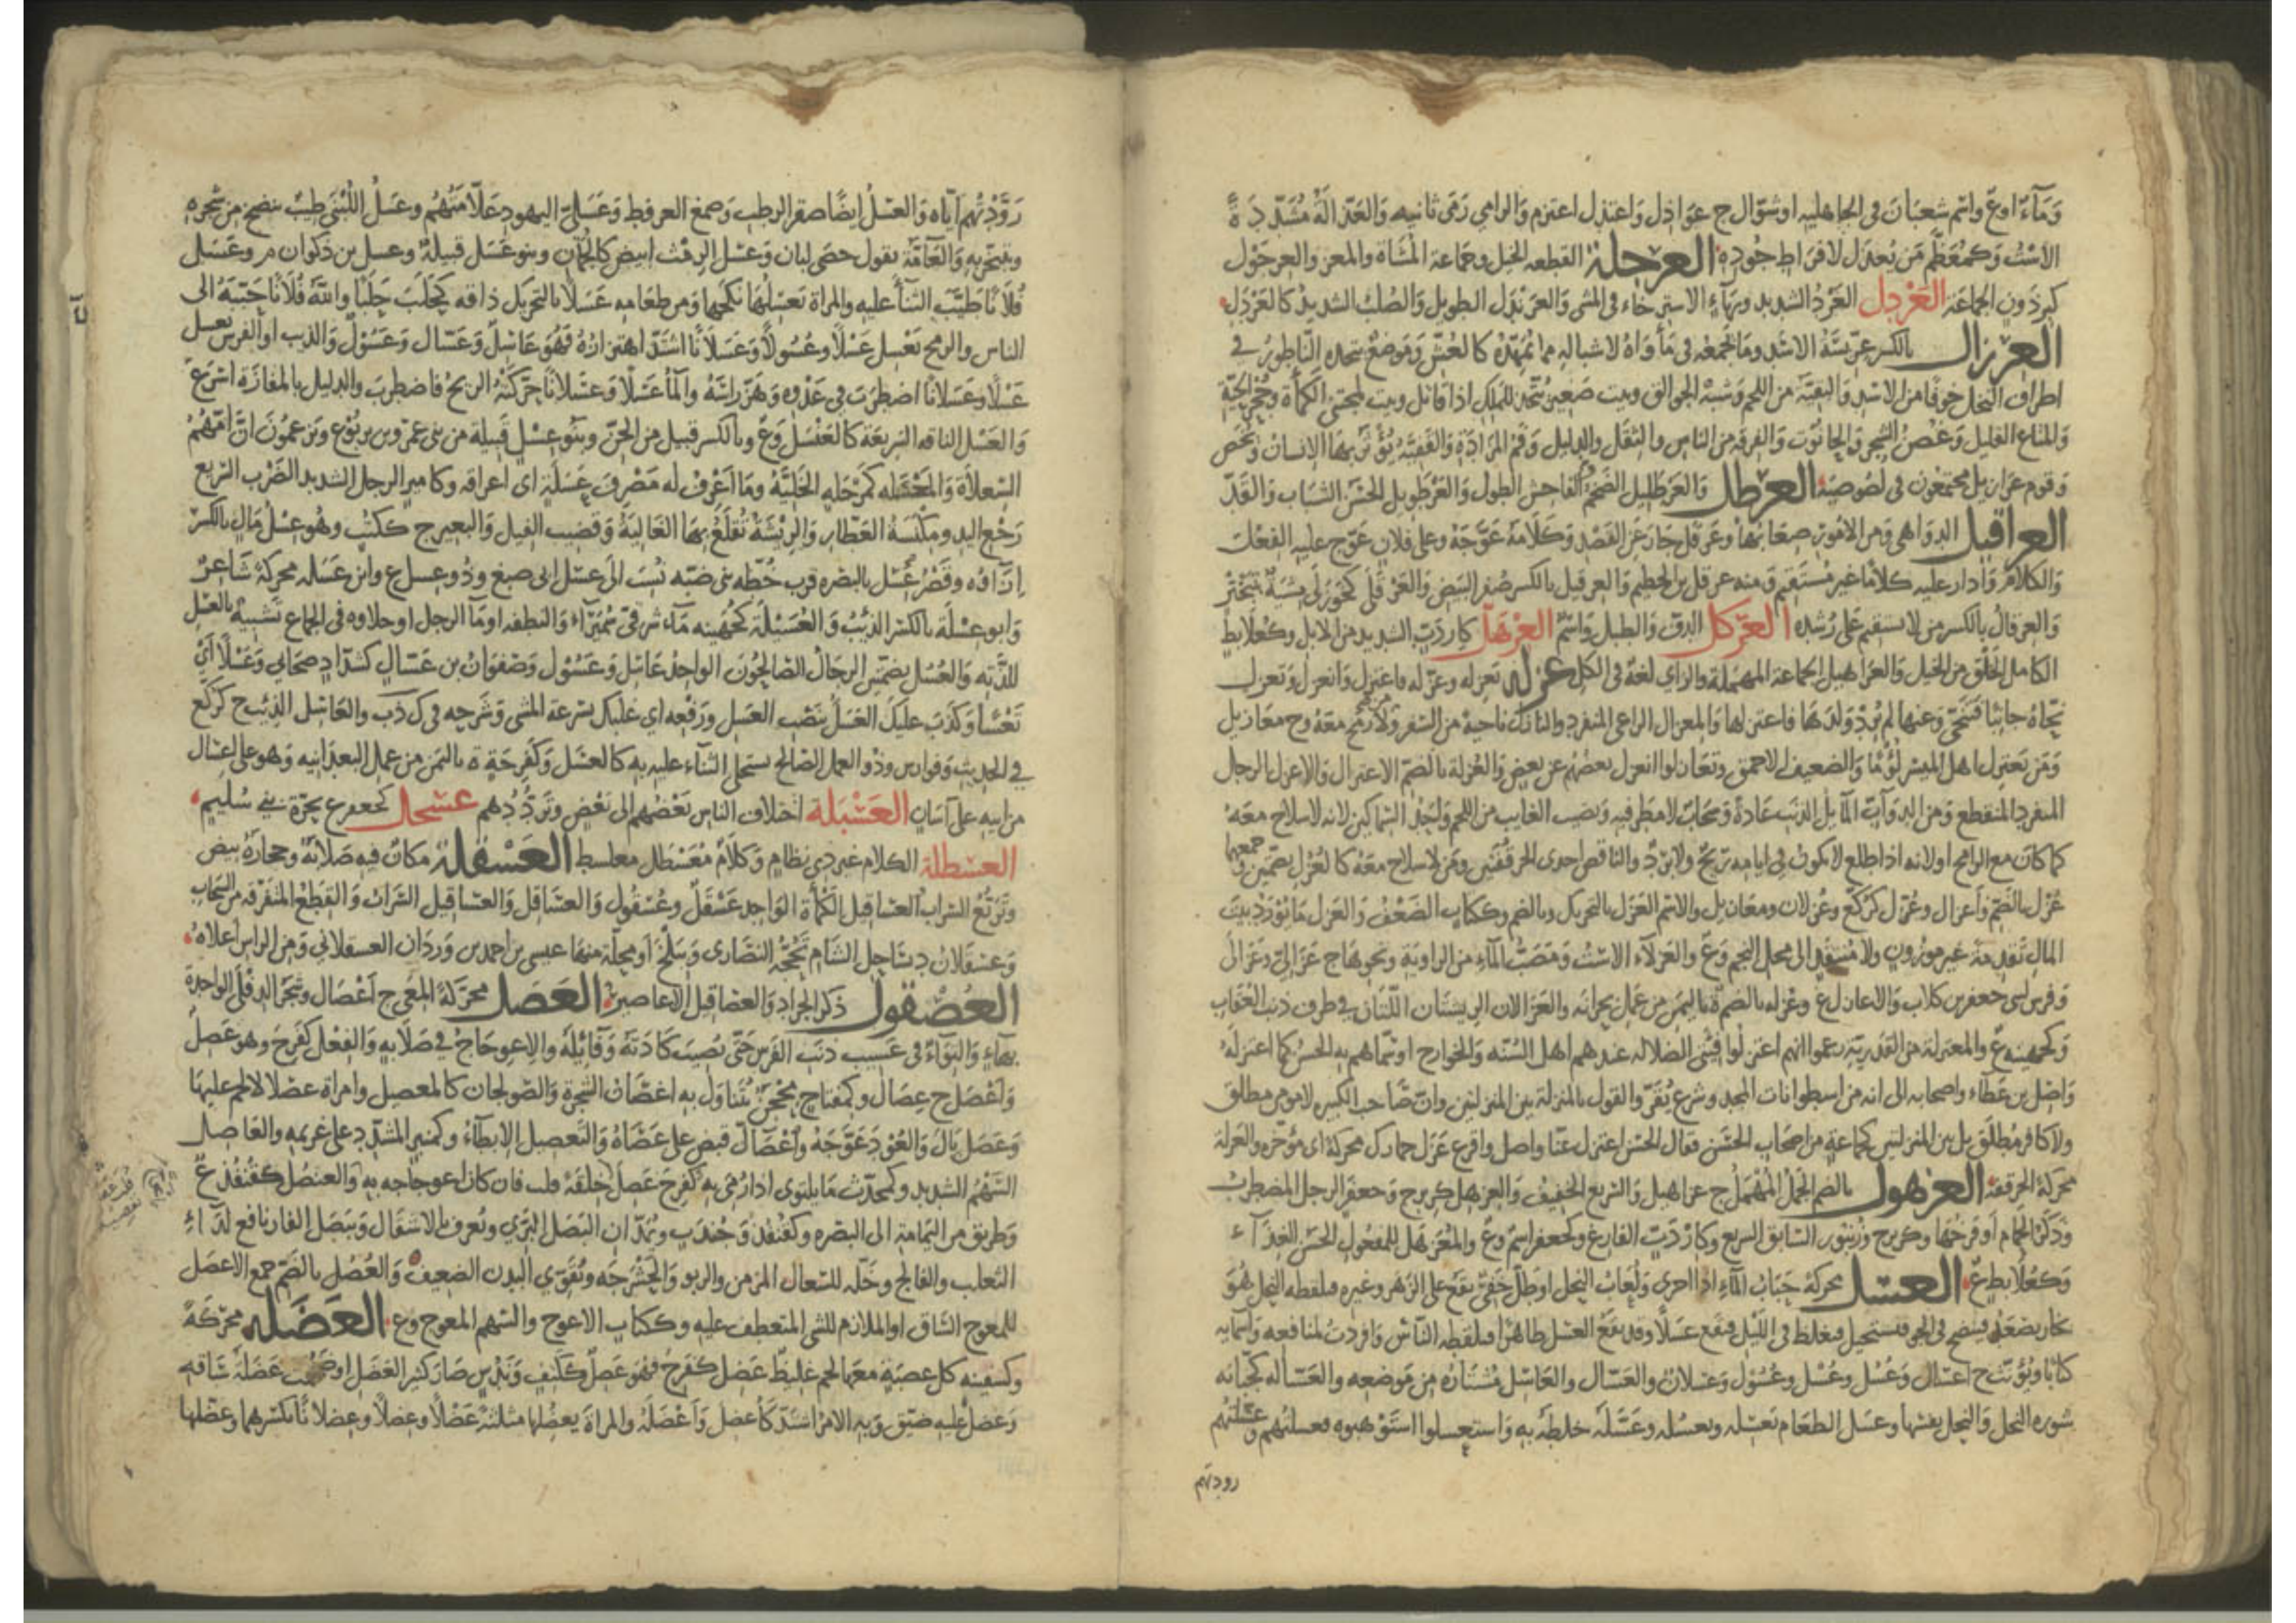 وَمَآءٌ اوع واسم شعبان في الجاهلية او شوال ج عواذل واعتذل اعتزم والرامي رمى ثانيه والعذالة مشددة
الاست وكمعظم من يعذل لافراط جوده العرجلة القطعه الخيل وجماعة المشاة والمعز والعرجول
كبرذون الجماعة العردل العرد الشديد وبهاء الاسترخاء في المشي والعرندل الطويل والصلب الشديد كالعردل
العرزال بالكسر عريسة الاسد وما يجمعه في مأواه لاشباله مما يمهده كالعش وموضع يتخذه الناطور في
اطراف النخل خوفا من الاسد والبقية من اللحم وشبه الجوالق وبيت صغير يتخذ للملك اذا قاتل وبيت لمجتني الكمأة وجحر الحية
والمتاع القليل وغصن الشجر والحانوت والفرقة من الناس والثقل والدليل وفم المزادة
وقوم عرازيل مجتمعون في لصوصية العرطل والعرطليل الضخم والفاحش الطول والعرطويل الحسن الشباب والقد
العراقيل الدواهي ومن الامور صعابها وعرقل جار عن القصد وكلامه عوجه وعلى فلان عوج عليه الفعل
والكلام وادار عليه كلاما غير مستقيم ومنه عرقل بن الخطيم والعرقيل بالكسر صفر البيض والعرقلى كخوزلى مشية تبختر
والعرقال بالكسر من لا يستقيم على رشده العركل الدف والطبل واسم العرهل كاردب الشديد من الابل وكعلابط
الكامل الخلق من الخيل والعراهيل الجماعة المهملة والزاي لغة في الكل عزله يعزله وعزله فاعتزل وانعزل وتعزل
نحاه جانبا فتنحى وعنها لم يرد ولدها فاعتزلها والمعزال الراعي المنفرد والنازل ناحية من السفر ولا رمح معه ج معازيل
ومن يعتزل اهل الميسر لؤما والضعيف الاحمق وتعازلوا انعزل بعضهم عن بعض والعزلة بالضم الاعتزال والاعزل الرجل
المنفرد المنقطع ومن الدواب المايل الذنب عادة وسحاب لا مطر فيه ونصيب الغايب من اللحم واحد السماكين لانه لا سلاح معه
كما كان مع الرامح اولانه اذا طلع لا يكون في ايامه ريح ولا برد والناقص احدى الحرقفتين ومن لا سلاح معه كالعزل بضمتين وجمعهما
عزل بالضم واعزال وعزل كركع وعزلان ومعازيل والاسم العزل بالتحريك وبالضم وككتاب الضعف والعزل ما يورد بيت
المال تقدمة غير موزون ولا منتقد الى محل النجم وع والعزلاء الاست ومصب الماء من الراوية ونحوها ج عزالي وعزالى
وفرس لبني جعفر بن كلاب والاعازل ع وعزله بالضم ة باليمن من عمل بحرانه والعزالان الريشتان اللتان في طرف ذنب العقاب
وكجهينه ع والمعتزلة من القدرية زعموا انهم اعتزلوا فئتي الضلاله عندهم اهل السنه والخوارج او سماهم به الحسن لما اعتزله
واصل بن عطاء واصحابه الى اسطوانة من اسطوانات المسجد وشرع يقرر القول بالمنزلة بين المنزلتين وان صاحب الكبيره لا مومن مطلق
ولا كافر مطلق بل بين المنزلتين كجماعة من اصحاب الحسن فقال الحسن اعتزل عنا واصل واقرع عزل حمارك محركة اي مؤخره والعزلة
محركة الحرقفة العزهول بالضم الجمل المهمل ج عزاهيل والسريع الخفيف والعزهل كزبرج وجعفر الرجل المضطرب
وذكر الحمام او فرخها وكزبرج وزنبور السابق السريع وكاردب الفارغ وكجعفر اسم وع والمعزهل للمفعول الحسن الغذاء
وكعلابط ع العسل محركة حباب الماء اذا جرى ولعاب النحل او طل خفي يقع على الزهر وغيره فيلقطه النحل هو
بخار يصعد فينضج في الجو فيستحيل فيغلظ في الليل فيقع عسلا وقد يقع العسل ظاهرا فيلقطه الناس وافردت لمنافعه واسمايه
كتابا ويؤنث ج اعسال وعسل وعسل وعسول وعسلان والعسال والعاسل مشتاره من موضعه والعسالة كجبانه
شوره النحل والنحل نفسها وعسل الطعام يعسله ويعسله وعسله خلطه به واستعسلوا استوهبوه فعسلتهم وعسلتهم
رودتهم
زودتهم اياه والعسل ايضا صقر الرطب وصمغ العرفط وعسلي اليهود علامتهم وعسل اللبنى طيب ينضح من شجره
ويتبخر به والعامة تقول حصى لبان وعسل الرمث ابيض كالجمان وبنو عسل قبيلة وعسل بن ذكوان م وعسل
فلانا طيب الثناء عليه والمراة يعسلها نكحها ومن طعامه عسلا بالتحريك ذاقه كحلب حلبا والله فلانا حببه الى
الناس والرمح يعسل عسلا وعسولا وعسلانا اشتد اهتزازه فهو عاسل وعسال وعسول والذيب او الفرس يعسل
عسلا وعسلانا اضطرب في عدوه وهز راسه والماء عسلا وعسلانا حركته الريح فاضطرب والدليل بالمفازة اسرع
والعسل الناقه السريعة كالعنسل وع وبالكسر قبيل من الجن وبنو عسل قبيلة من بني عمرو بن يربوع ويزعمون ان امهم
السعلاة والمحتطله كمرحله الخلية وما اعرف له مضرب عسلة اي اعراقه وكامير الرجل الشديد الضرب السريع
رجع اليد ومكنسة العطار والريشة تقلغ بها الغالية وقضيب الفيل والبعير ج ككتب وهو عسل مال بالكسر
ازاؤه وقصر عسل بالبصره قرب خطه بني ضبه نسب الى عسل ابي صبيغ وذو عسل ع وابن عسله محركة شاعر
وابو عسلة بالكسر الذئب والعسيلة كجهينه ماء شرقي سميراء والنطفه او ماء الرجل او حلاوه في الجماع تشبيه بالعسل
للذته والعسل بضمتين الرجال الصالحون الواحد عاسل وعسول وصفوان بن عسال كشداد صحابي وعسلا اي
تعسا وكذب عليك العسل بنصب العسل ورفعه اي عليك بسرعة المشي وشرحه في ك ذب والعاسل الذئب ج كركع
في الحديث وفوارس وذو العمل الصالح يستحلى الثناء عليه به كالعسل وكفرحة ة باليمن من عمل البعدانيه وهو على اعسال
من ابيه على اسان العشبلة اختلاف الناس بعضهم الى بعض وترددهم عسجل كجعفر ع بحرة بني سليم
العسطلة الكلام غير ذي نظام وكلام معسطل معلسط العسقلة مكان فيه صلابة وحجارة بيض
وتريع السراب العساقيل الكمأة الواحد عسقل وعسقول والعساقل والعساقيل السراب والقطع المتفرقه من السحاب
وعسقلان د بساحل الشام تحجه النصارى وة ببلخ او محلة منها عيسى بن احمد بن وردان العسقلاني ومن الراس اعلاه
العصقول ذكر الجراد والعصاقيل الاعاصير العصل محركة المعى ج اعصال وشجر الدفلى الواحدة
بهاء والتواء في عسيب ذنب الفرس حتى يصيب كاذته وفائله والاعوجاج في صلابه والفعل كفرح وهو عصل
واعصل ج عصال وكمفتاح محجن يتناول به اغصان الشجرة والصولجان كالمعصيل وامراة عصلا لا لحم عليها
وعصل بال والعود عوجه واعصال قبض على عصاه والتعصيل الابطاء وكمنبر المشدد على غريمه والعاصل
السهم الشديد وكمحدث ما يلتوي اذا رمي به كفرح عصل خلقة وليس فان كان اعوجاجه به والعنصل كقنفذ ع
وطريق من اليمامة الى البصره وكقنفذ وجندب ويمدان البصل البري ويعرف بالاشقال وببصل الفار نافع لداء
الثعلب والفالج وخله للسعال المزمن والربو والحشرجه ويقوي البدن الضعيف والعصل بالضم جمع الاعصل
للمعوج الساق او الملازم للشي المتعطف عليه وككتاب الاعوج والسهم المعوج وع العضله محركة
وكسفينه كل عصبة معها لحم غليظ عضل كفرح فهو عضل ككتف وندس صار كثير العضل او ضخمت عضلة ساقه
وعضل عليه ضيق وبه الامر اشتد كاعضل واعضله والمراة يعضلها مثلثة عضلا وعضلا وعضلانا بكسرهما وعضلها